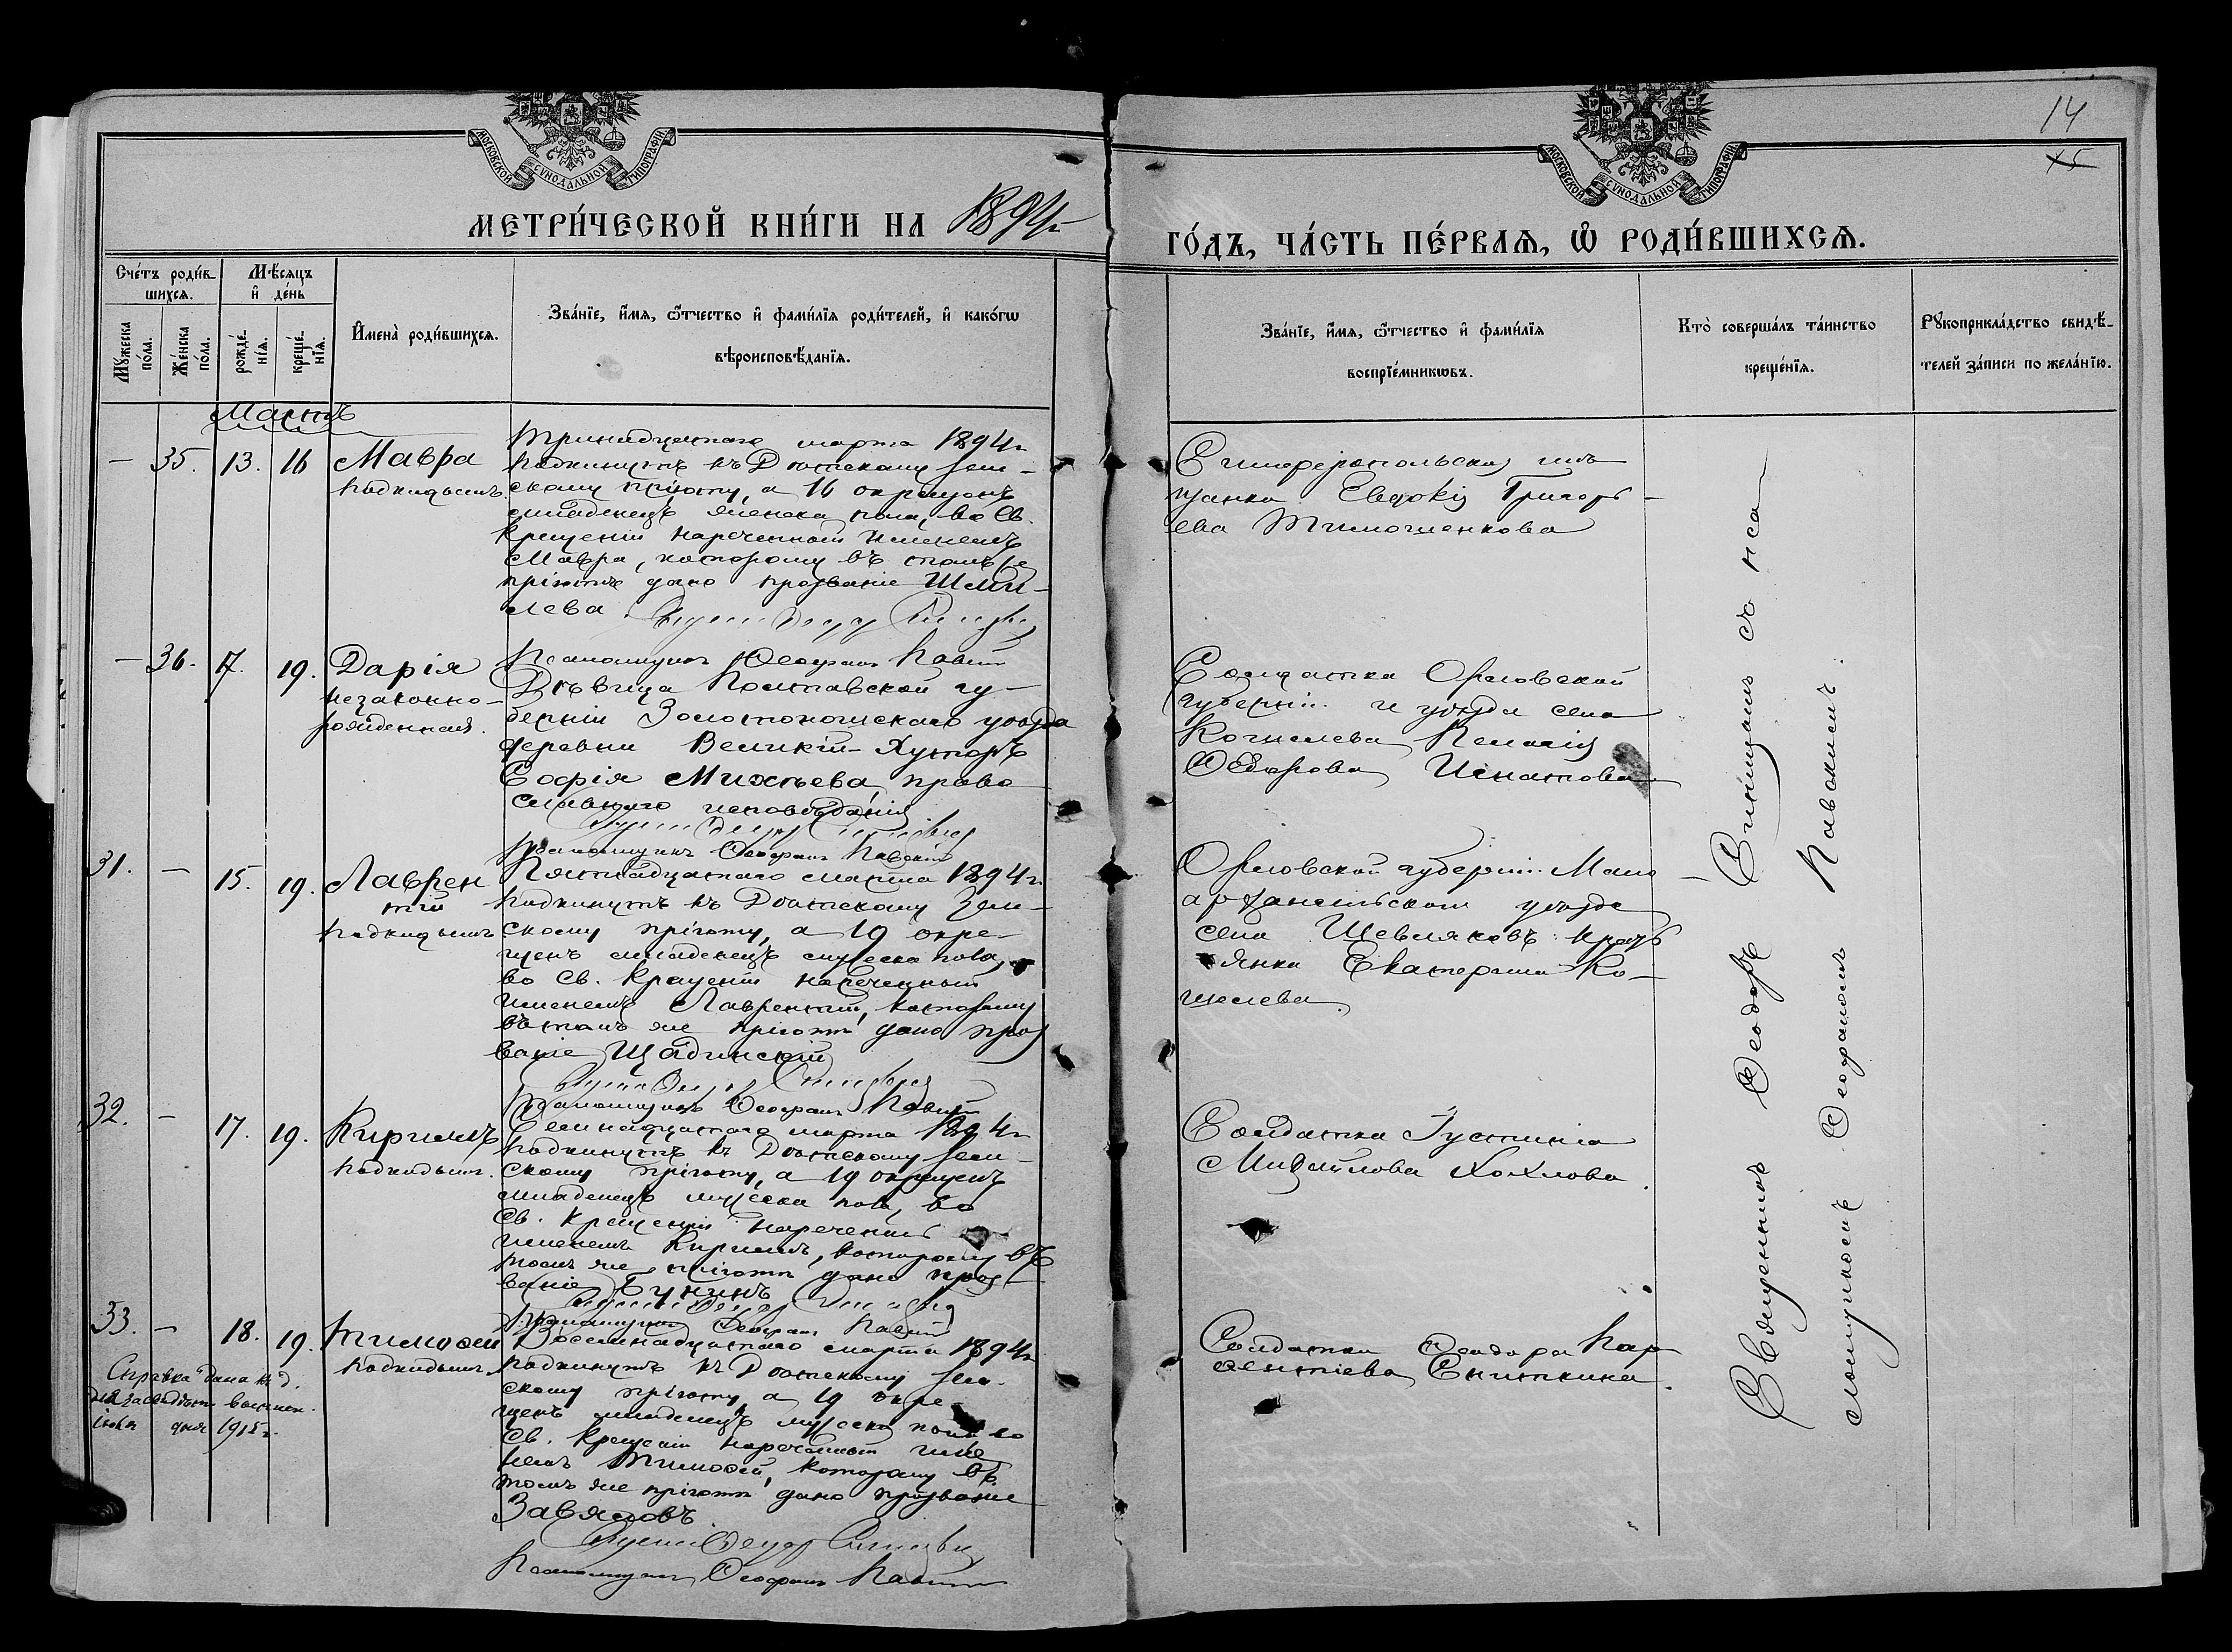 14
15
МОСКОВСКОЙ СѴНОДАЛЬНОЙ ТИПОГРАФІИ
МОСКОВСКОЙ СѴНОДАЛЬНОЙ ТИПОГРАФІИ
МЕТРИ́ЧЕСКОЙ КНИ́ГИ НА 1894
ГО́ДЪ, ЧА́СТЬ ПЕ́РВАѦ, Ѡ РОДИ́ВШИХСѦ.
Сче́тъ роди́в-
шихсѧ.
Мѣ́сѧцъ
и҆ де́нь
Мꙋ́жеска
по́ла.
Же́нска
по́ла.
рожде́-
нїѧ.
креще́-
нїѧ.
И҆мена̀ роди́вшихсѧ.
Зва́нїе, и҆́мѧ, ѻ҆́тчество и҆ фами́лїѧ роди́телей, и҆ како́гѡ
вѣроисповѣ́данїѧ.
Зва́нїе, и҆́мѧ, ѻ҆́тчество и҆ фами́лїѧ
воспрїе́мникѡвъ.
Кто̀ соверша́лъ та́инство
креще́нїѧ.
Рꙋкоприкла́дство свидѣ́-
телей за́писи по жела́нїю.
Мартъ
— 35. 13. 16 Мавра
подкидышъ
тринадцатаго марта 1894 г.
подкинутъ къ Дѣтскому зем-
скому пріюту, а 16 окрещенъ
младенецъ женска пола, во Св.
Крещеніи нареченный именемъ
Мавра, которому въ томъ же
пріютѣ дано прозваніе Шмы-
лева
Симферопольская мѣ-
щанка Евдокія Григорь-
ева Тимошенкова
— 36. 17. 19. Дарія
незаконно-
рожденная.
Псаломщикъ Ѳеофанъ
Дѣвица Полтавской гу-
берніи Золотоношскаго уѣзда
деревни Великій-Хуторъ
Софія Михѣева, право
славнаго исповѣданія
Солдатка Орловской
губерніи и уѣзда села
Кошелева Пелагія
Ѳедорова Игнатова
31. — 15. 19. Лаврен
тій
подкидышъ
Псаломщикъ Ѳеофанъ
Пятнадцатаго марта 1894 г.
подкинутъ къ Дѣтскому Зем-
скому пріюту, а 19 окре-
щенъ младенецъ мужеска пола,
во Св. Крещеніи нареченный
именемъ Лаврентій, которому
въ томъ же пріютѣ дано проз
ваніе Щадинскій
Орловской губерніи Мало
архангельскаго уѣзда
села Шевляковъ крестъ
янка Екатерина Ко-
шелева
32. — 17. 19. Кириллъ
подкидышъ.
Псаломщикъ Ѳеофанъ
Семнадцатаго марта 1894 г.
подкинутъ къ Дѣтскому зем-
скому пріюту, а 19 окрещенъ
младенецъ мужеска пола, во
Св. Крещеніи нареченный
именемъ Кириллъ, которому въ
томъ же пріютѣ дано проз-
ваніе Бунинъ
Солдатка Іустинія
Михайлова Хохлова.
33. — 18. 19. Тимоѳей
подкидышъ
Псаломщикъ Ѳеофанъ
Восемнадцатаго марта 1894 г.
подкинутъ къ Дѣтскому зем-
скому пріюту, а 19 окре-
щенъ младенецъ мужеска пола во
Св. Крещеніи нареченный име
немъ Тимоѳей, которому въ
томъ же пріютѣ дано прозваніе
Завяловъ
Псаломщикъ Ѳеофанъ
Солдатка Ѳеодора
Снѣткина.
Справка дана
1915 г.
Священникъ Ѳеодоръ съ пса-
ломщикомъ Ѳеофаномъ